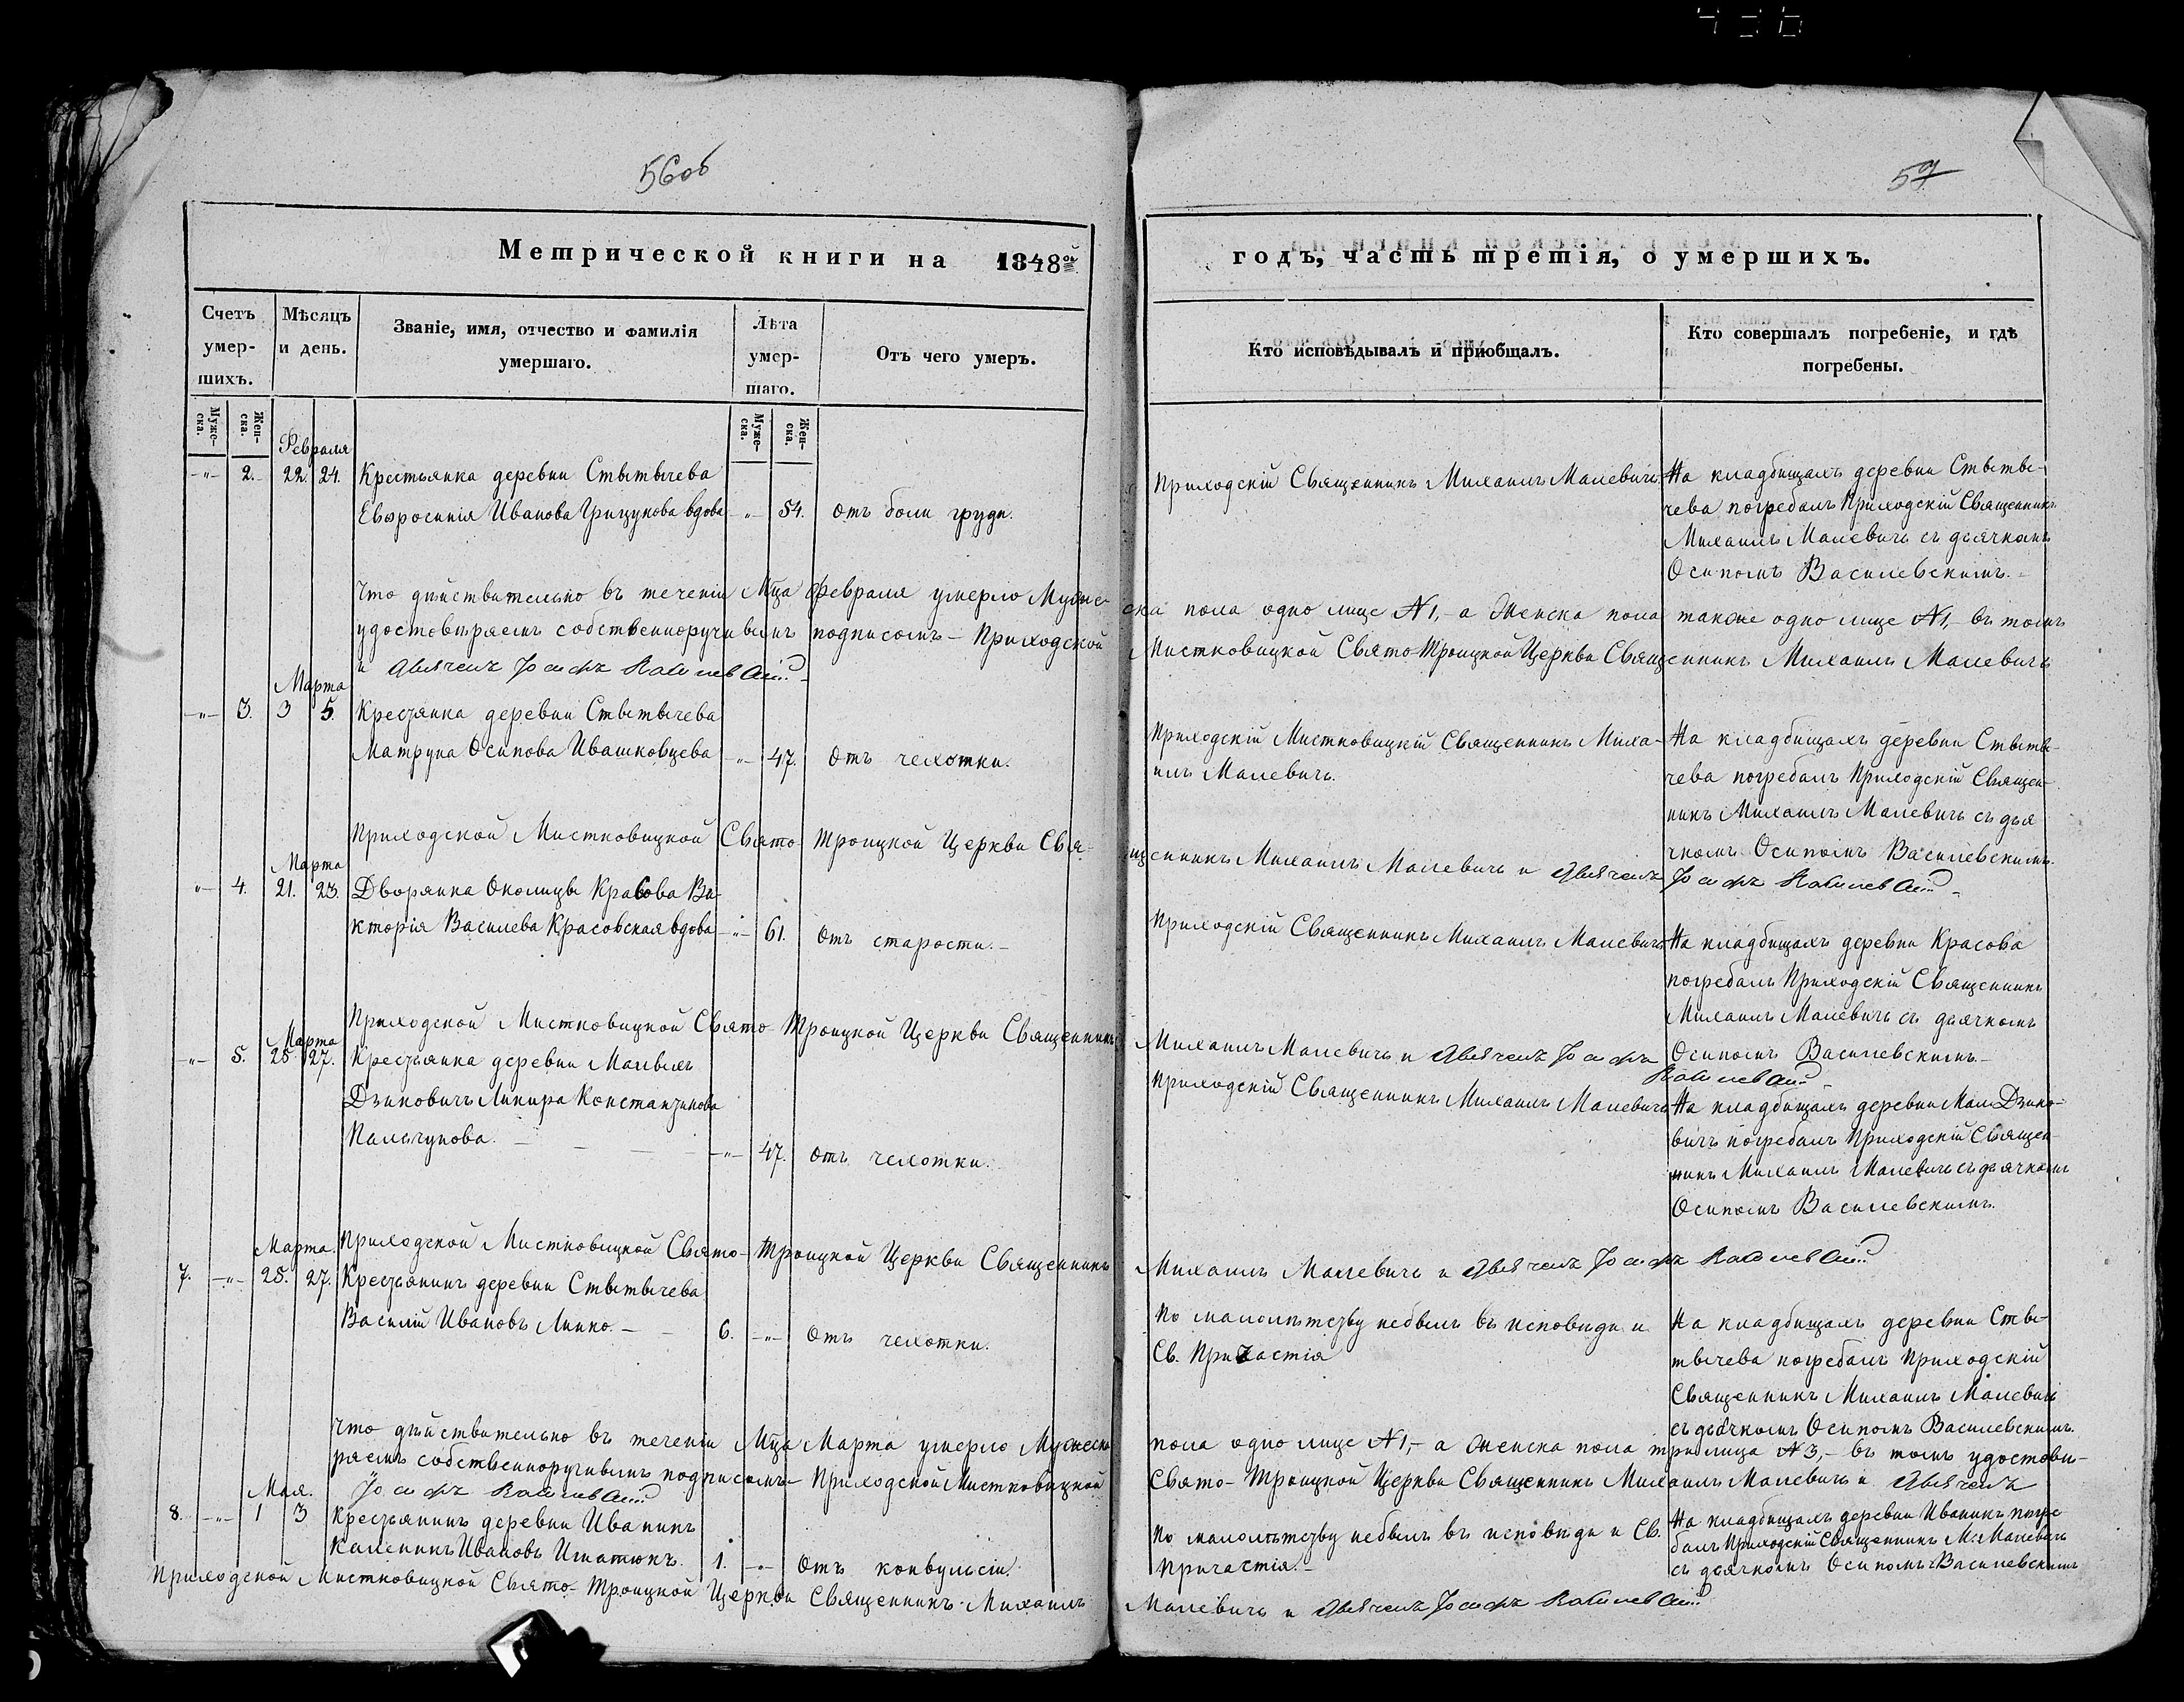 56об
57
Метрической книги на 1848ой
годъ, часть третія, о умершихъ.
Счетъ умер-
шихъ.
Мѣсяцъ
и день.
Званіе, имя, отчество и фамилія
умершаго.
Лѣта
умер-
шаго.
Отъ чего умеръ.
Кто исповѣдывалъ и пріобщалъ.
Кто совершалъ погребеніе, и гдѣ
погребены.
Муже-
ска.
Жен-
ска.
Муже-
ска.
Жен-
ска.
Февраля
-"- 2. 22. 24. Крестьянка деревни Стытычева
Евфросинія Иванова Грицукова вдова -"- 54. отъ боли груди.
Приходскій Священникъ Михаилъ Малевичъ
На кладбищахъ деревни Стыты-
чева погребалъ Приходскій Священникъ
Михаилъ Малевичъ съ дьячкомъ
Осипомъ Василевскимъ.
Что дѣйствительно въ теченіи Мца Февраля умерло Муже-
ска пола одно лице №1,- а Женска пола также одно лице №1,- въ томъ
удостовѣряемъ собственноручнымъ подписомъ - Приходской
Мистковицкой Свято-Троицкой Церкви Священникъ Михаилъ Малевичъ
и Дьячекъ Іосифъ
Марта
-"- 3. 3 5. Кресьянка деревни Стытычева
Матруна Осипова Ивашковцева -"- 47. отъ чехотки.
Приходскій Мистковицкій Священникъ Миха-
илъ Малевичъ.
На кладбищахъ деревни Стыты-
чева погребалъ Приходскій Священ-
никъ Михаилъ Малевичъ съ дья
чкомъ Осипомъ Василевскимъ.
Приходской Мистковицкой Свято Троицкой Церкви Свя-
щенникъ Михаилъ Малевичъ и Дьячекъ Іосифъ
Марта
" 4. 21. 23. Дворянка Околицы Красова Ви-
кторія Василева Красовская вдова -"- 61. отъ старости.-
Приходскій Священникъ Михаилъ Малевичъ
На кладбищахъ деревни Красова
погребалъ Приходскій Священникъ
Михаилъ Малевичъ съ дьячкомъ
Осипомъ Василевскимъ.-
Приходской Мистковицкой Свято Троицкой Церкви Священникъ
Михаилъ Малевичъ и Дьячекъ Іосифъ
Марта
-"- 5. 25 27. Кресьянка деревни Малыхъ
Дзиковичъ Кпстантинова
-"- 47. отъ чехотки.
Приходскій Священникъ Михаилъ Малевичъ
На кладбищахъ деревни Мал. Дзико-
вичъ погребалъ Приходскій Священ-
никъ Михаилъ Малевичъ съ дьячкомъ
Осипомъ Василевскимъ.
Приходской Мистковицкой Свято-Троицкой Церкви Священникъ
Михаилъ Малевичъ и Дьячекъ Іосифъ
Марта.
7. -"- 25. 27. Кресьянинъ деревни Стытычева
Василій Ивановъ Линко.- 6. -"- отъ чехотки.
По малолѣтсву небылъ въ исповѣди и
Св. Причастія
На кладбищахъ деревни Сты-
тычева погребалъ Приходскій
Священникъ Михаилъ Малевичъ
съ дьячкомъ Осипомъ Василевскимъ.
Что дѣйствительно въ теченіи Мца Марта умерло Мужеска
пола одно лице №1,- а Женска пола три лица №3,- въ томъ удостовѣ-
ряемъ собственноручнымъ подписомъ - Приходской Мистковицкой
Свято-Троицкой Церкви Священникъ Михаилъ Малевичъ и Дьячекъ
Іосифъ
Мая.
8. -"- 1 3 Кресьянинъ деревни Иваникъ
Каленикъ Ивановъ Игнатюкъ. 1. -"- отъ конвульсіи
По малолѣтсву небылъ въ исповѣди и Св.
Причастія.-
На кладбищахъ деревни Иваникъ погре
балъ Приходскій Священникъ М. Малевичъ
съ дьячкомъ Осипомъ Василевскимъ
Приходской Мистковицкой Свято-Троицкой Церкви Священникъ Михаилъ
Малевичъ и Дьячекъ Іосифъ